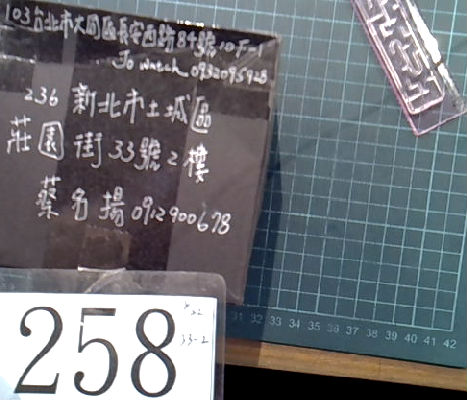 103台北市大同區長安西路84號10F-1
Jo watch 0932095928
236 新北市土城區
莊園街33號2樓
蔡名揚 0912900678
258
33-2
31 32 33 34 35 36 37 38 39 40 41 42